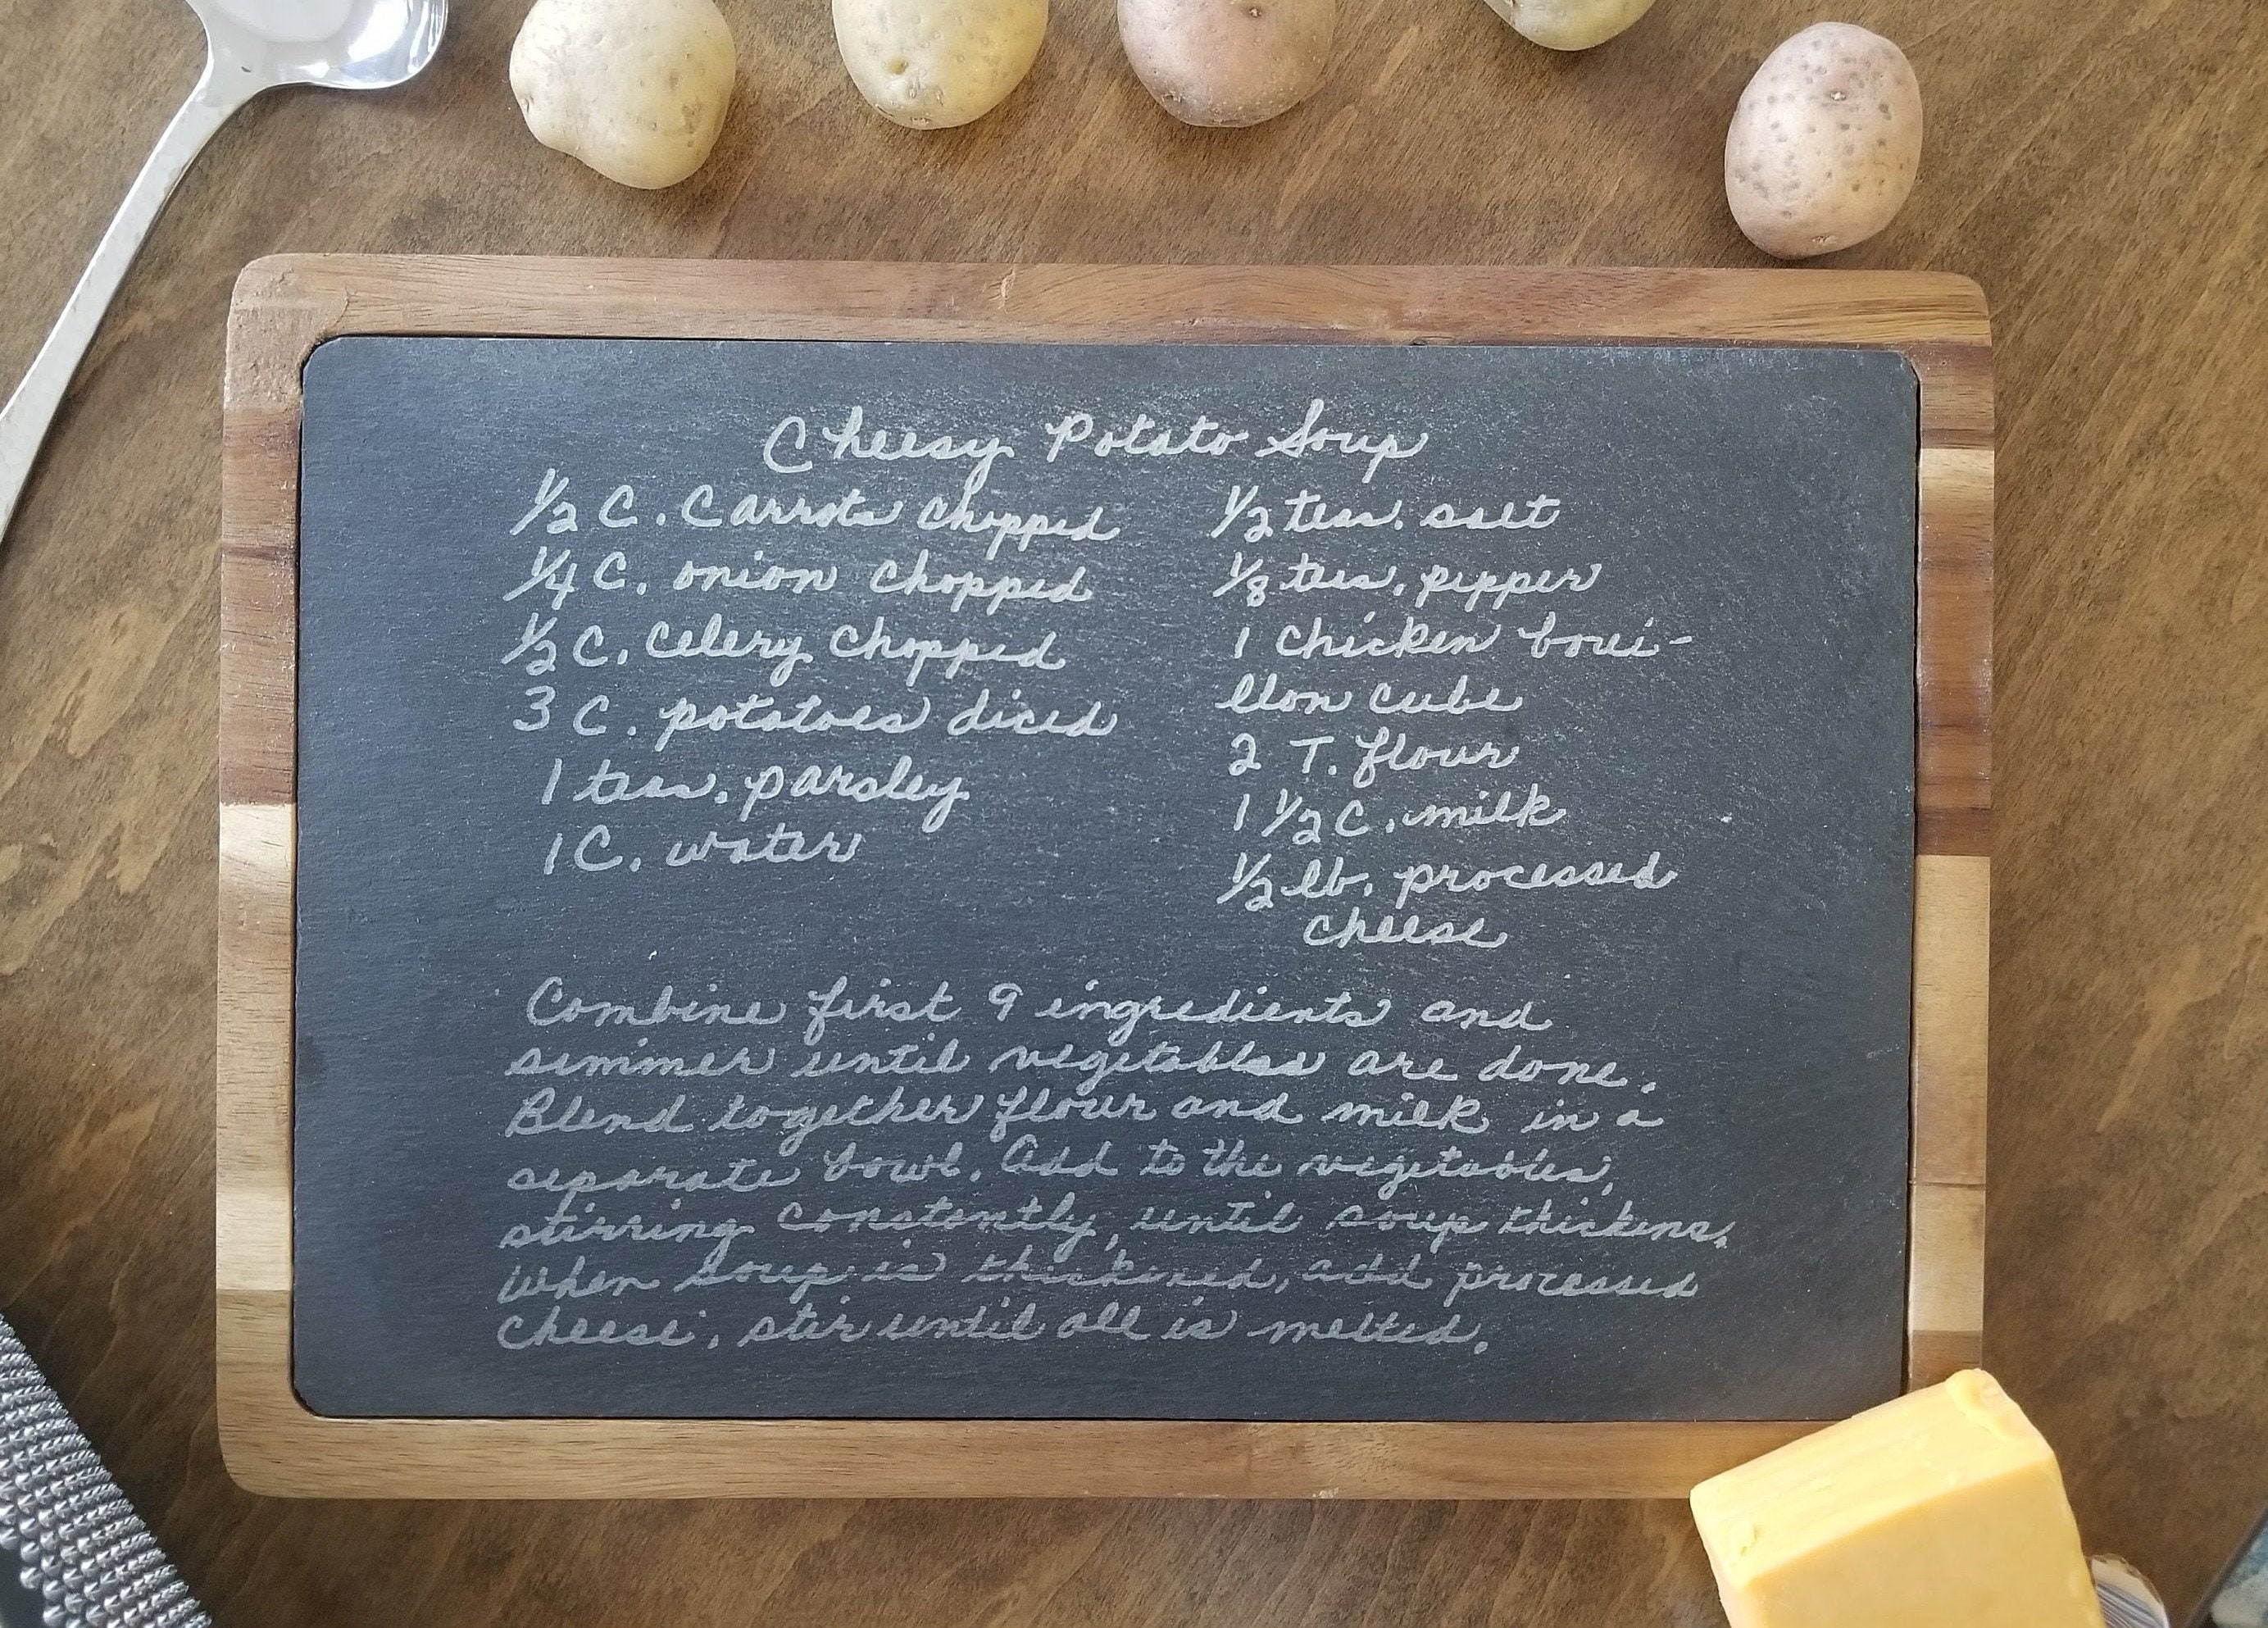 Cheesy Potato Soup
1/2 C. Carrots chopped
1/4 C. onion chopped
1/2 C. Celery chopped
3 C. potatoes diced
1 teas. parsley
1 C. water
1/2 teas. salt
1/8 teas. pepper
1 chicken boui-
llon cube
2 T. flour
1 1/2 C. milk
1/2 lb. processed
cheese
Combine first 9 ingredients and
simmer until vegetables are done.
Blend together flour and milk in a
separate bowl. Add to the vegetables,
stirring constantly, until soup thickens.
When soup is thickened, add processed
cheese, stir until all is melted.